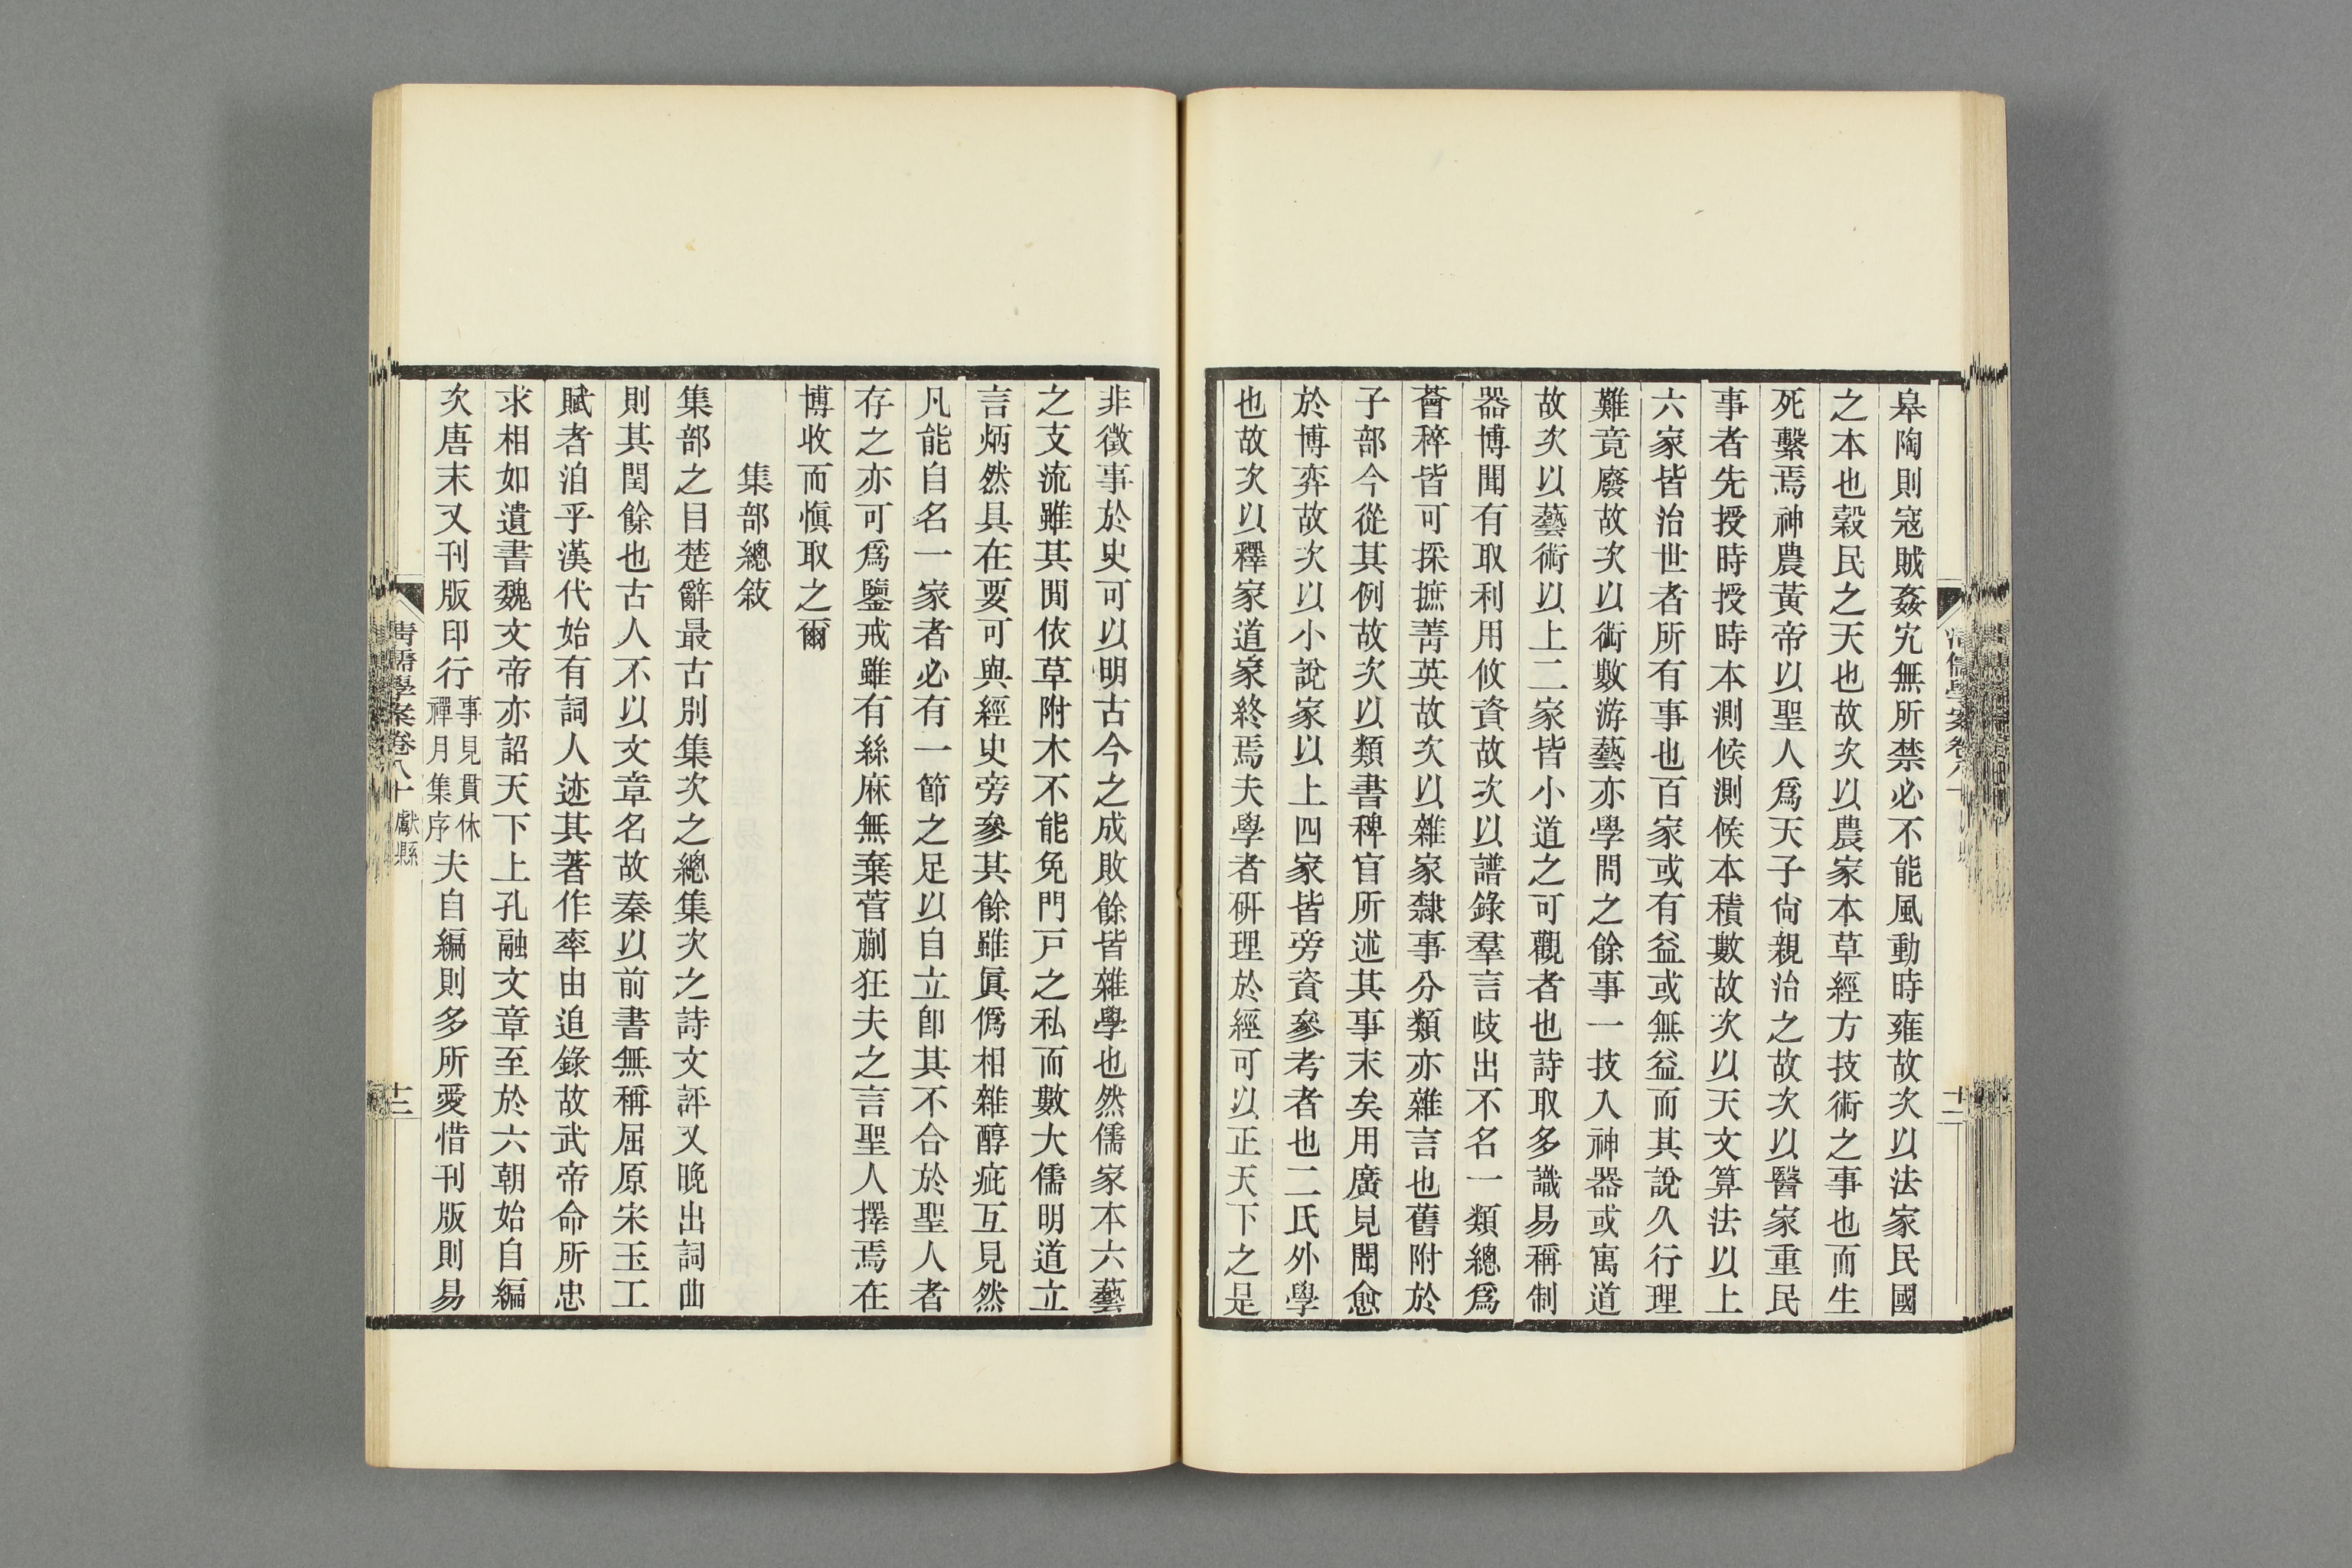 皋陶則寇賊姦宄無所禁必不能風動時雍故次以法家民國
之本也穀民之天也故次以農家本草經方技術之事也而生
死繫焉神農黃帝以聖人爲天子尙親治之故次以醫家重民
事者先授時授時本測候測候本積數故次以天文算法以上
六家皆治世者所有事也百家或有益或無益而其說久行理
難竟廢故次以術數游藝亦學問之餘事一技入神器或寓道
故次以藝術以上二家皆小道之可觀者也詩取多識易稱制
器博聞有取利用攸資故次以譜錄羣言歧出不名一類總爲
薈稡皆可採摭菁英故次以雜家隸事分類亦雜言也舊附於
子部今從其例故次以類書稗官所述其事末矣用廣見聞愈
於博弈故次以小說家以上四家皆旁資參考者也二氏外學
也故次以釋家道家終焉夫學者硏理於經可以正天下之是
清儒學案卷八十
十二
非徵事於史可以明古今之成敗餘皆雜學也然儒家本六藝
之支流雖其閒依草附木不能免門戸之私而數大儒明道立
言炳然具在要可與經史旁參其餘雖眞僞相雜醇疵互見然
凡能自名一家者必有一節之足以自立卽其不合於聖人者
存之亦可爲鑒戒雖有絲麻無棄菅蒯狂夫之言聖人擇焉在
博收而愼取之爾
集部總敍
集部之目楚辭最古別集次之總集次之詩文評又晚出詞曲
則其閏餘也古人不以文章名故秦以前書無稱屈原宋玉工
賦者洎乎漢代始有詞人迹其著作率由追錄故武帝命所忠
求相如遺書魏文帝亦詔天下上孔融文章至於六朝始自編
次唐末又刊版印行事見貫休禪月集序夫自編則多所愛惜刊版則易
清儒學案卷八十 獻縣
十三